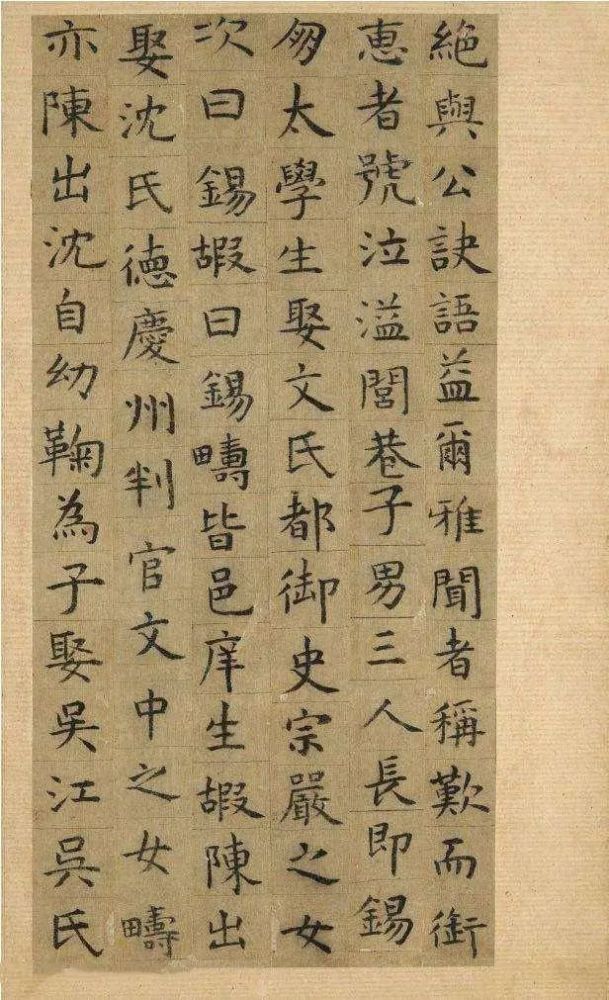 絕與公訣語益爾雅聞者稱歎而銜
惠者號泣溢閭巷子男三人長即錫
太學生娶文氏都御史宗嚴之女
次曰錫嘏曰錫疇皆邑庠生嘏陳出
娶沈氏德慶州判官文中之女疇
亦陳出沈自幼鞠為子娶吳江吳氏